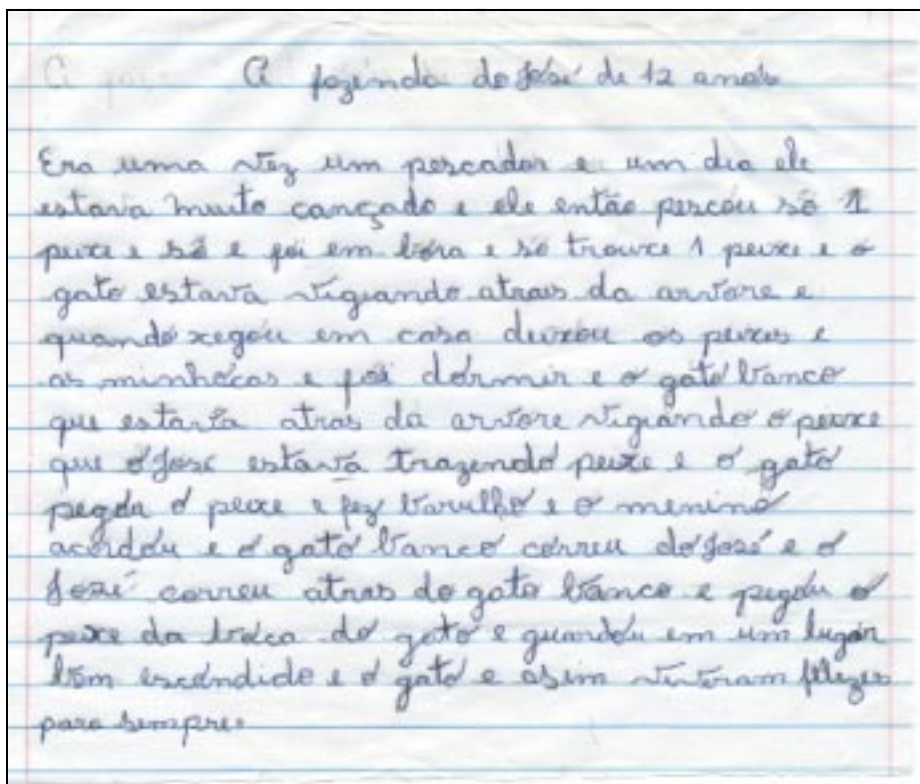 A fazenda do José de 12 anos
Era uma vez um pescador e um dia ele
estava muito cançado e ele então pescou só 1
peixe e só e foi em bora e so trouxe 1 peixe e o
gato estava vigiando atrais da arvore e
quando xegou em casa deixou os peixes e
as minhocas e foi dormir e o gato banco
que estava atras da arvore vigiando o peixe
que o José estava trazendo peixe e o gato
pegou o peixe e fez barulho e o menino
acordou e o gato banco correu do José e o
José correu atras do gato banco e pegou o
peixe da boca do gato e guandou em um lugar
bom escondido e o gato e asim viviram felizes
para sempre.